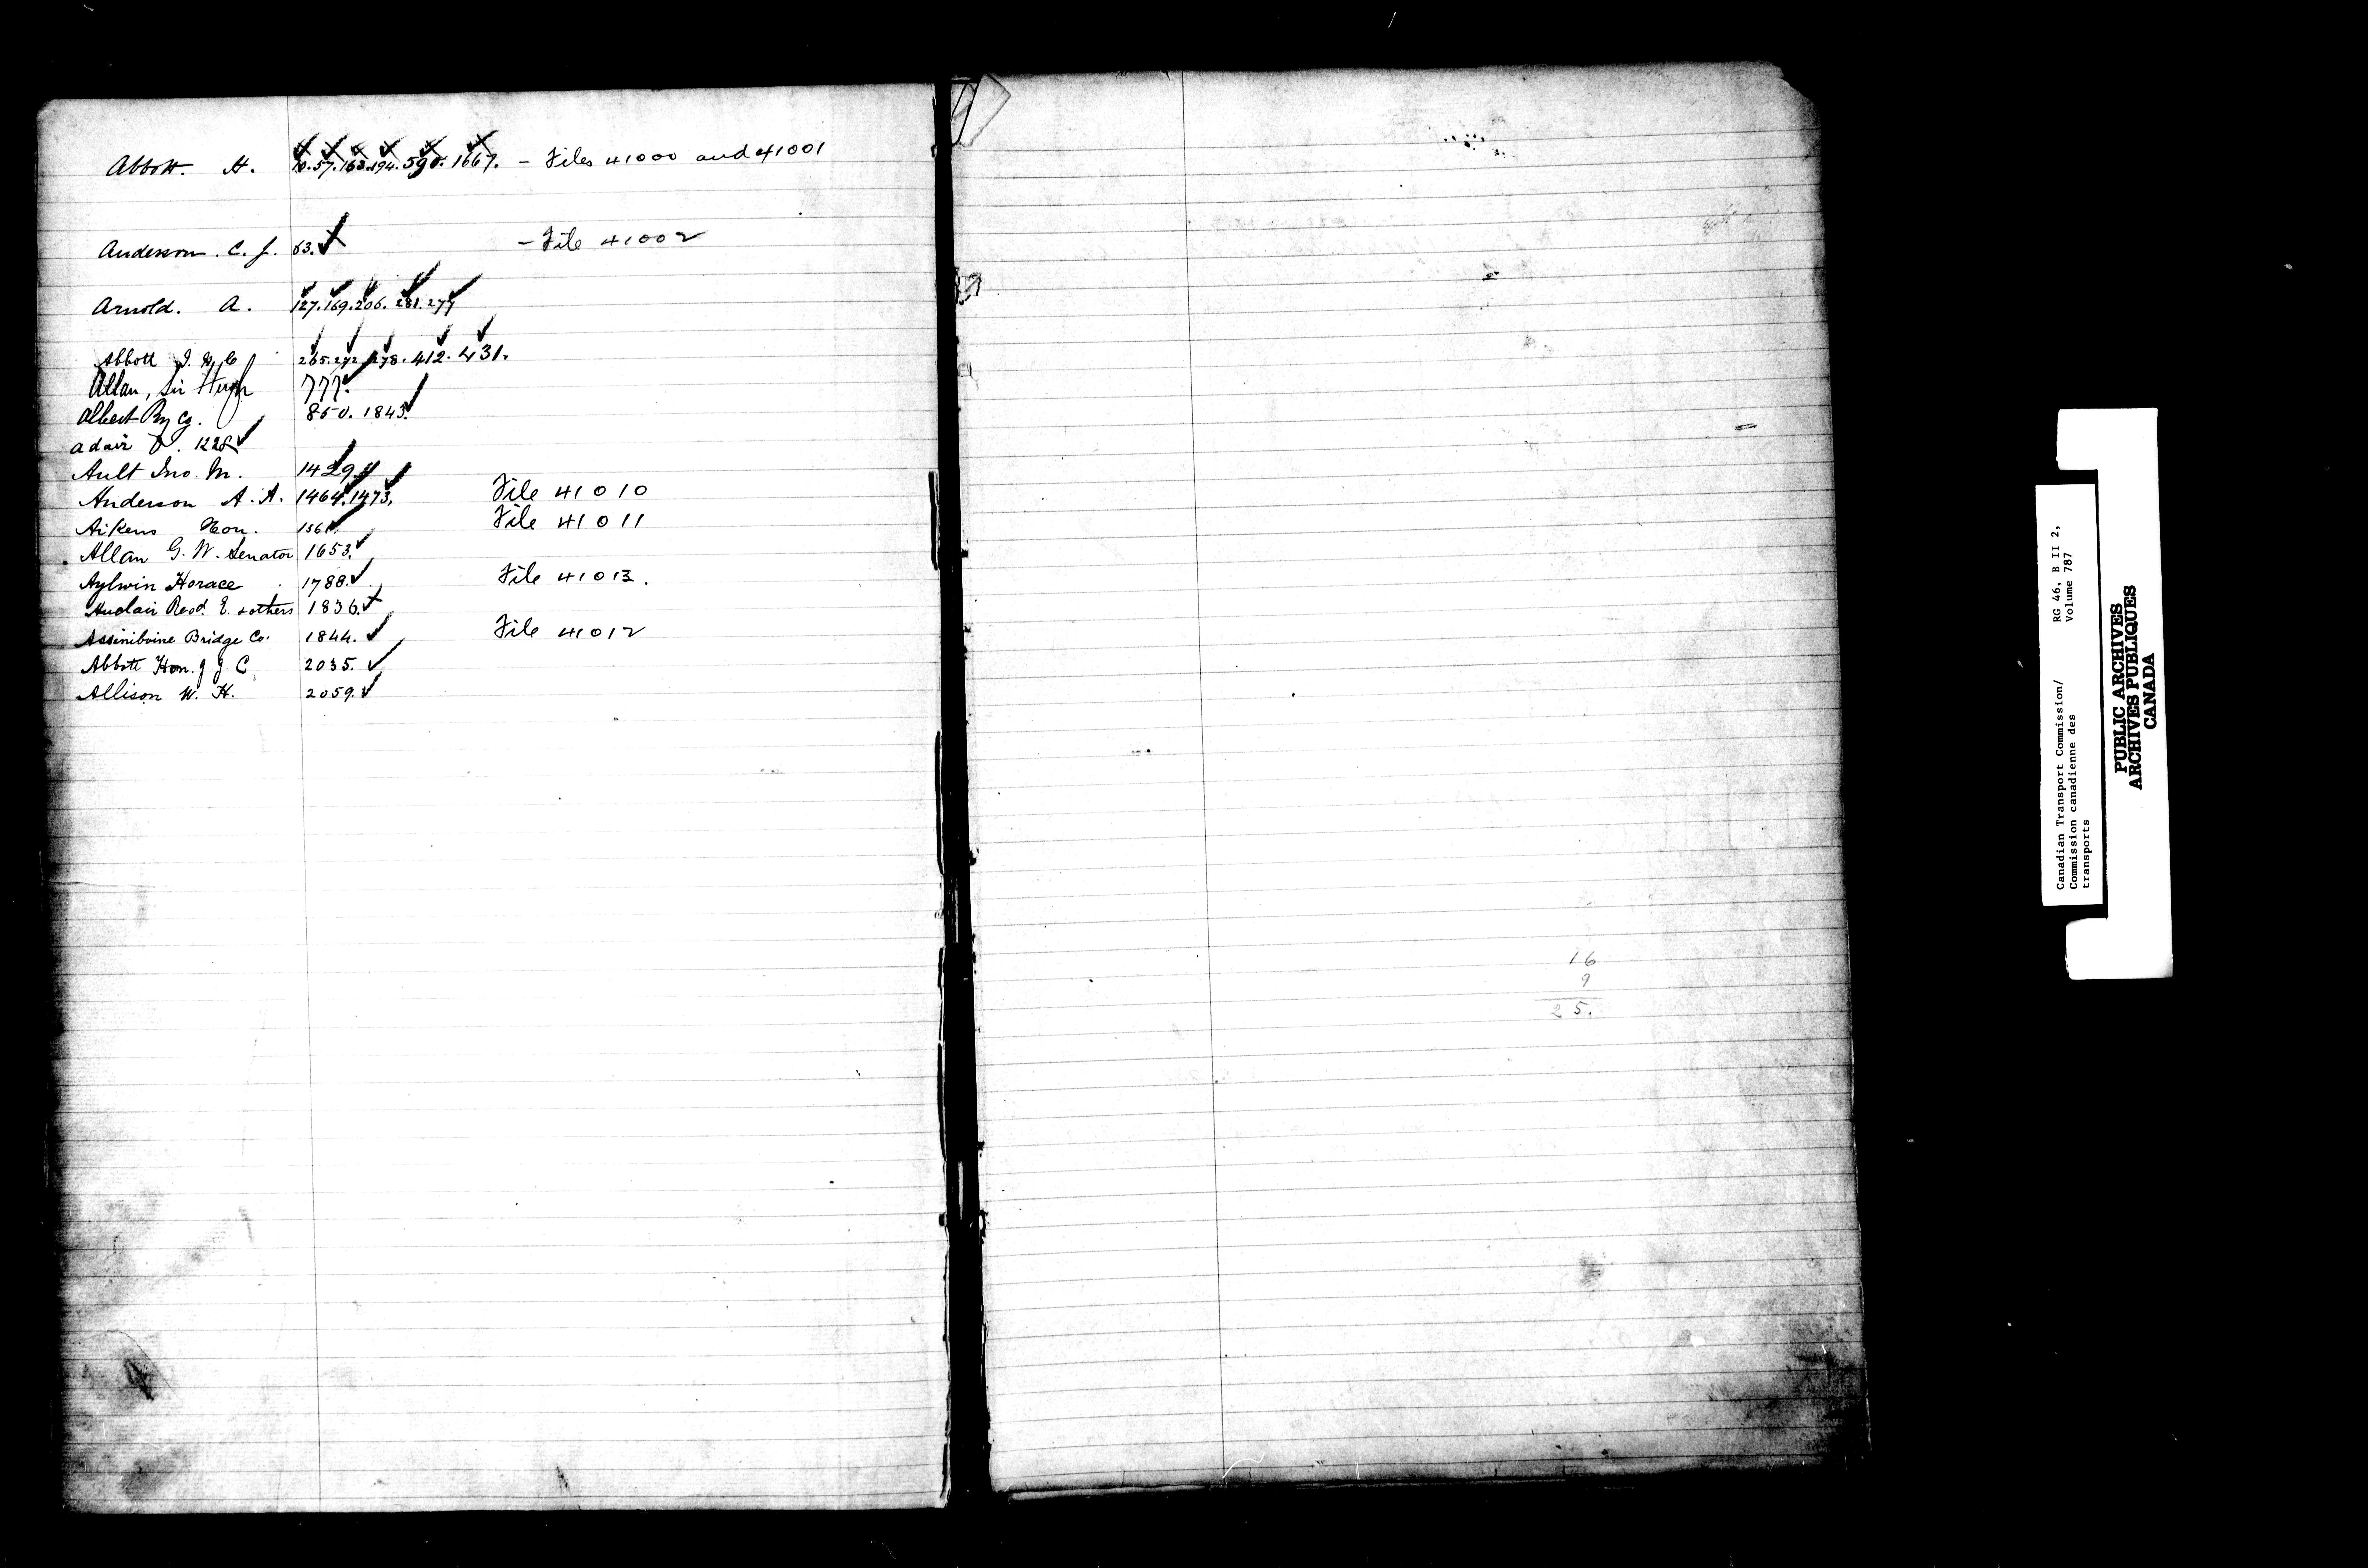 Abbott. H. 10. 57. 163. 194. 590. 1667. – Files 41000 and 41001
Anderson. C. J. 63. – File 41002
Arnold. A. 127. 169. 206. 281. 277
Abbott J. J. C 265. 272. 278. 412. 431.
Allan, Sir Hugh 777.
Albert Ry Co. 850. 1843.
Adair 1228
Ault Jno. M. 1429.
Anderson A. A. 1464. 1473. File 41010
Aikens Hon. 1561. File 41011
Allan G. W. Senator 1653.
Aylwin Horace 1788. File 41013.
Auclair Revd. E. & others 1836.
Assiniboine Bridge Co. 1844. File 41012
Abbott Hon. J J. C 2035.
Allison W. H. 2059.
16
9
25.
Canadian Transport Commission/ RG 46, B II 2,
Commission canadienne des Volume 787
transports
PUBLIC ARCHIVES
ARCHIVES PUBLIQUES
CANADA